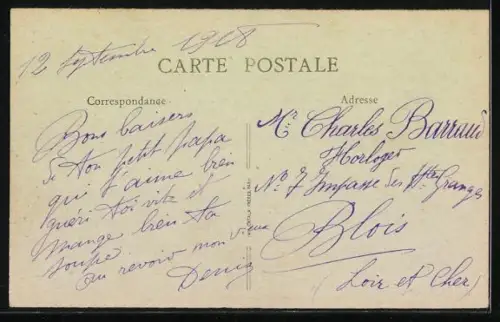 12 Septembre 1918
CARTE POSTALE
Correspondance
Bons baisers
de ton petit papa
qui t'aime bien
guéri toi vite et
mange bien ta
soupe
au revoir mon vieux
Denis
Adresse
Mr Charles Barraud
Horloger
No 7 Impasse des Htes Granges
Blois
(Loir et Cher)